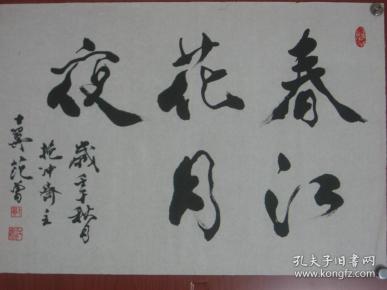 春江
花月
夜
歲壬午秋月
抱冲斋主
十翼范曾
孔夫子旧书网
www.kongfz.com